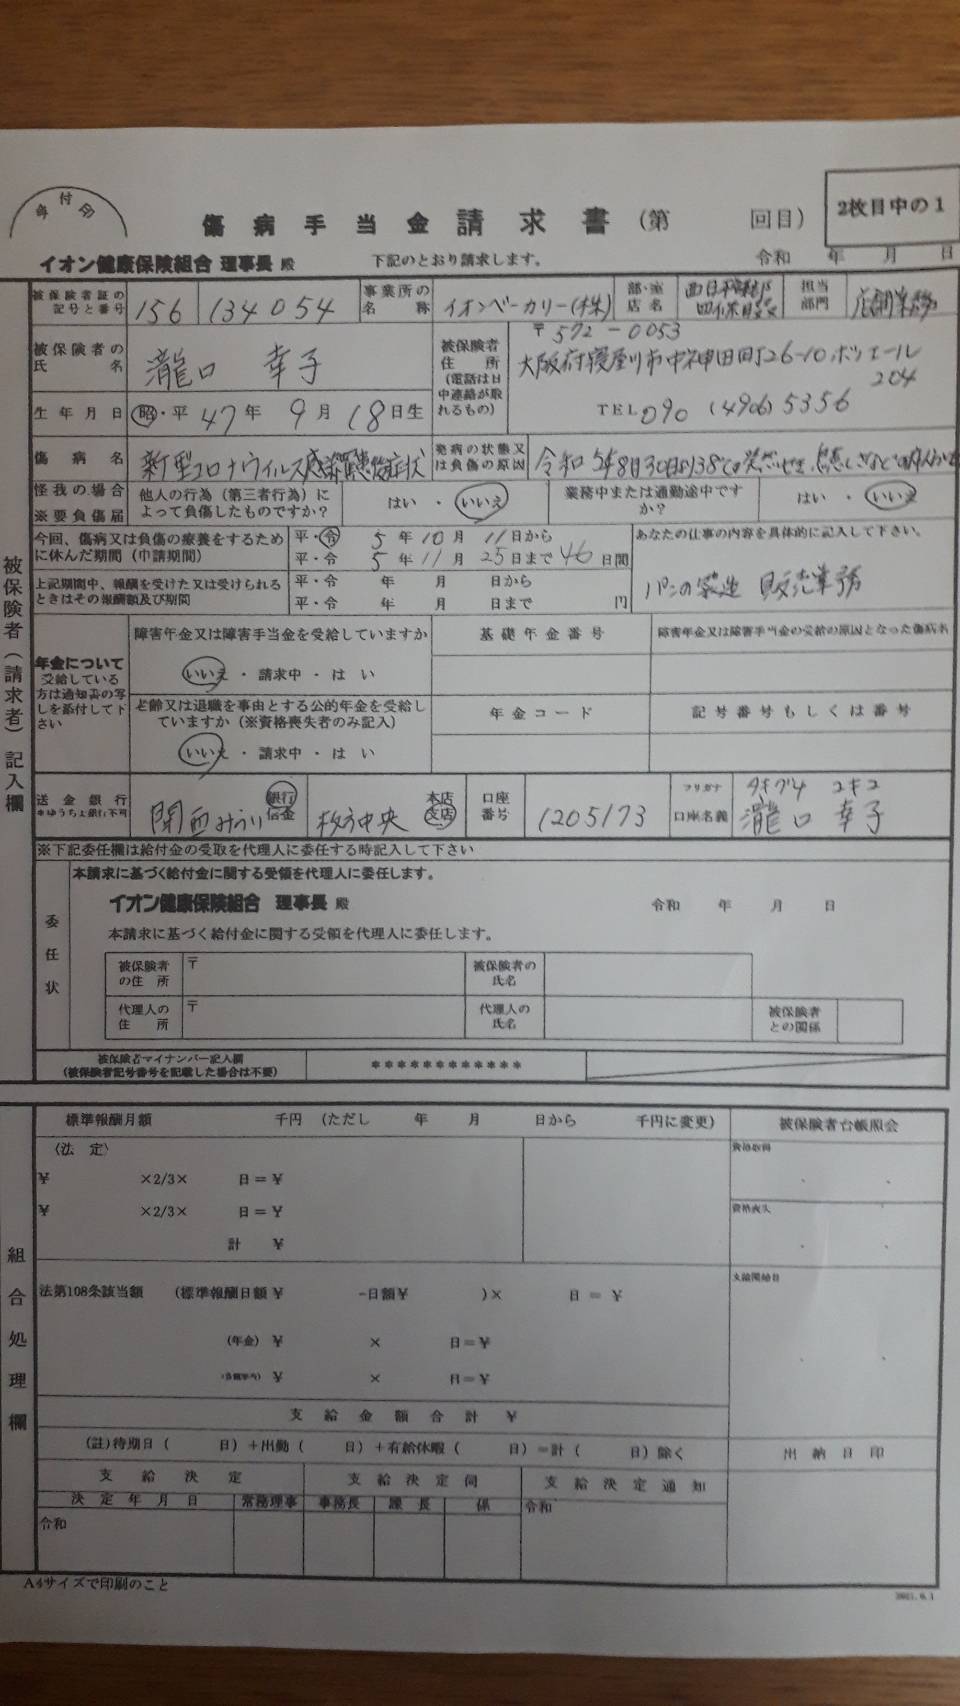 受付印
傷病手当金請求書（第　　回目）
2枚目中の1
令和　年　月　日
イオン健康保険組合 理事長 殿　下記のとおり請求します。
被保険者証の記号と番号　156　134054　事業所の名称　イオンベーカリー(株)　部・室店名　担当部門
被保険者の氏名　瀧口　幸子　被保険者住所（電話は日中連絡が取れるもの）　〒572-0053
大阪府寝屋川市中神田町26-10
204
生年月日　昭・平 47年 9月 18日生　TEL 090 (4906) 5356
傷病名　新型コロナウイルス感染　症状　発病の状態又は負傷の原因　令和5年8月30日より38℃の
怪我の場合　※要負傷届　他人の行為（第三者行為）によって負傷したものですか？　はい・いいえ　業務中または通勤途中ですか？　はい・いいえ
今回、傷病又は負傷の療養をするために休んだ期間（申請期間）　平・令 5年10月11日から
平・令 5年11月25日まで 46日間
あなたの仕事の内容を具体的に記入して下さい。
パンの製造 販売業務
上記期間中、報酬を受けた又は受けられるときはその報酬額及び期間　平・令　年　月　日から
平・令　年　月　日まで　円
被保険者（請求者）記入欄
年金について
受給している方は通知書の写しを添付して下さい
障害年金又は障害手当金を受給していますか　基礎年金番号　障害年金又は障害手当金の受給の原因となった傷病名
いいえ・請求中・はい
老齢又は退職を事由とする公的年金を受給していますか（※資格喪失者のみ記入）　年金コード　記号番号もしくは番号
いいえ・請求中・はい
送金銀行　※ゆうちょ銀行不可　関西みらい　銀行　信金　枚方中央　本店　支店　口座番号　1205173　フリガナ　口座名義　瀧口　幸子
※下記委任欄は給付金の受取を代理人に委任する時記入して下さい
委任状
本請求に基づく給付金に関する受領を代理人に委任します。
イオン健康保険組合 理事長 殿　令和　年　月　日
本請求に基づく給付金に関する受領を代理人に委任します。
被保険者の住所　〒　被保険者の氏名
代理人の住所　〒　代理人の氏名　被保険者との関係
被保険者マイナンバー記入欄
（被保険者記号番号を記載した場合は不要）　＊＊＊＊＊＊＊＊＊＊＊＊
組合処理欄
標準報酬月額　千円（ただし　年　月　日から　千円に変更）　被保険者台帳照会
〈法定〉　資格取得
¥　×2/3×　日＝¥
¥　×2/3×　日＝¥　資格喪失
計　¥
支給開始日
法第108条該当額　（標準報酬日額¥　-日額¥　）×　日＝¥
（年金）¥　×　日＝¥
¥　×　日＝¥
支給金額合計　¥
（註）待期日（　日）＋出勤（　日）＋有給休暇（　日）＝計（　日）除く　出納日印
支給決定　支給決定伺　支給決定通知
決定年月日　常務理事　事務長　課長　係　令和
令和
A4サイズで印刷のこと